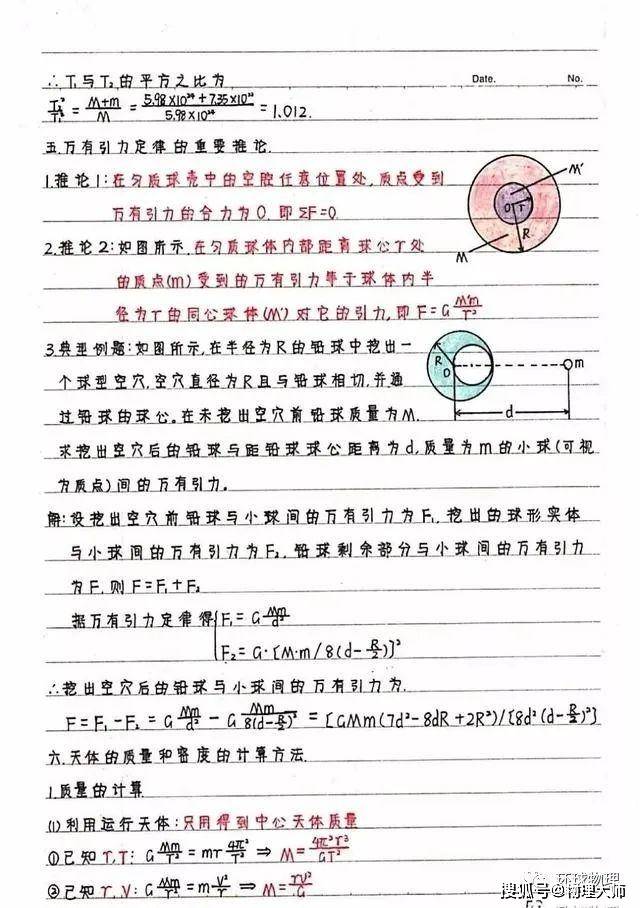 ∴T₁与T₂的平方之比为
Date. No.
T₂²/T₁² = (M+m)/M = (5.98×10²⁴+7.35×10²²)/(5.98×10²⁴) = 1.012.
五.万有引力定律的重要推论.
1.推论1:在匀质球壳中的空腔任意位置处,质点受到
万有引力的合力为0.即ΣF=0.
M'
O r
R
M
2.推论2:如图所示,在匀质球体内部距离球心r处
的质点(m)受到的万有引力等于球体内半
径为r的同心球体(M')对它的引力,即F=G M'm/r²
3.典型例题:如图所示,在半径为R的铅球中挖出一
个球型空穴,空穴直径为R且与铅球相切,并通
过铅球的球心。在未挖出空穴前铅球质量为M.
R
O
m
d
求挖出空穴后的铅球与距铅球球心距离为d,质量为m的小球(可视
为质点)间的万有引力。
解:设挖出空穴前铅球与小球间的万有引力为F₁,挖出的球形实体
与小球间的万有引力为F₂,铅球剩余部分与小球间的万有引力
为F,则F=F₁+F₂
据万有引力定律得{F₁=G Mm/d²
F₂=G·[M·m/8(d-R/2)]²
∴挖出空穴后的铅球与小球间的万有引力为.
F=F₁-F₂=G Mm/d² - G Mm/8(d-R/2)² = [GMm(7d²-8dR+2R²)/[8d²(d-R/2)²]
六.天体的质量和密度的计算方法.
1.质量的计算
(1)利用运行天体:只用得到中心天体质量
①已知r,T: G Mm/r² = mr 4π²/T² ⇒ M=4π²r³/GT²
②已知r,v: G Mm/r² = m v²/r ⇒ M=rv²/G
环球物理
搜狐号@物理大师